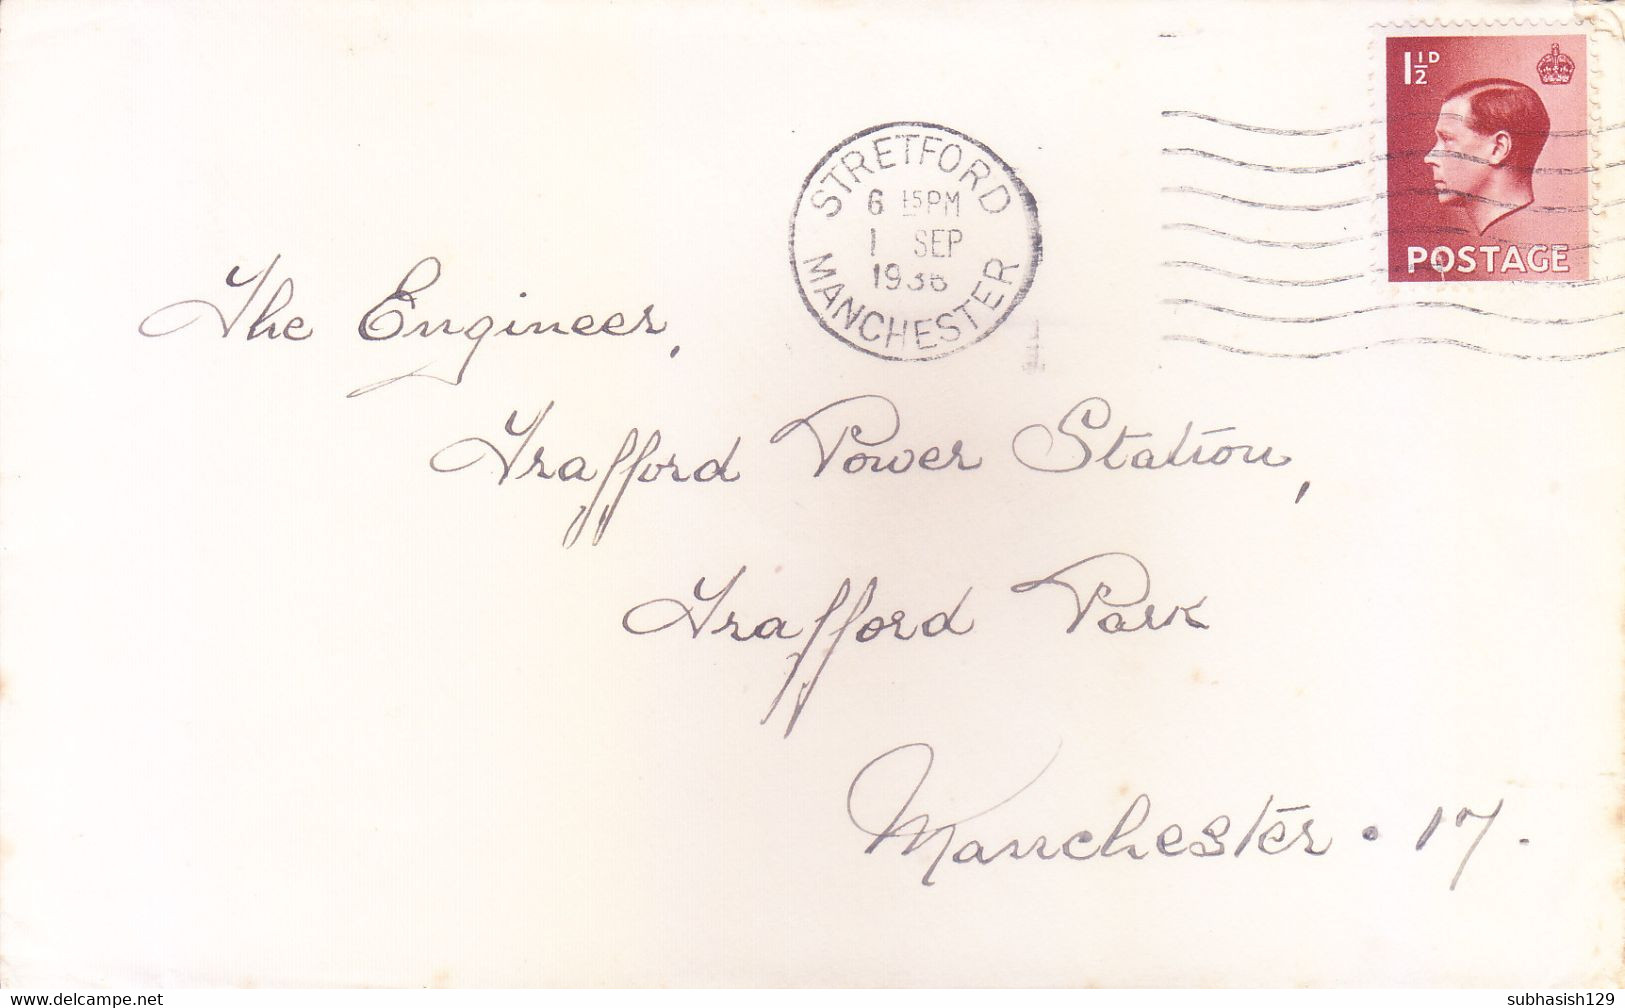 1½D
POSTAGE
STRETFORD
6 15PM
1 SEP
1936
MANCHESTER
The Engineer,
Trafford Power Station,
Trafford Park
Manchester · 17.
www.delcampe.net
subhasish129